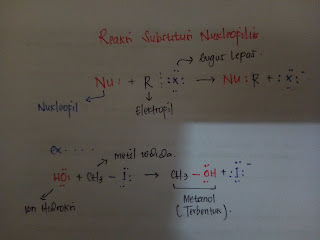 Reaksi Substitusi Nukleopilik
gugus lepas.
Nu: + R :X: → Nu:R + :X:⁻
Nukleofil
Elektropil
ex.....
metil iodida.
HO: + CH₃ – I: → CH₃ – OH + :I:⁻
Ion Hidroksi
Metanol
(Terbentuk).